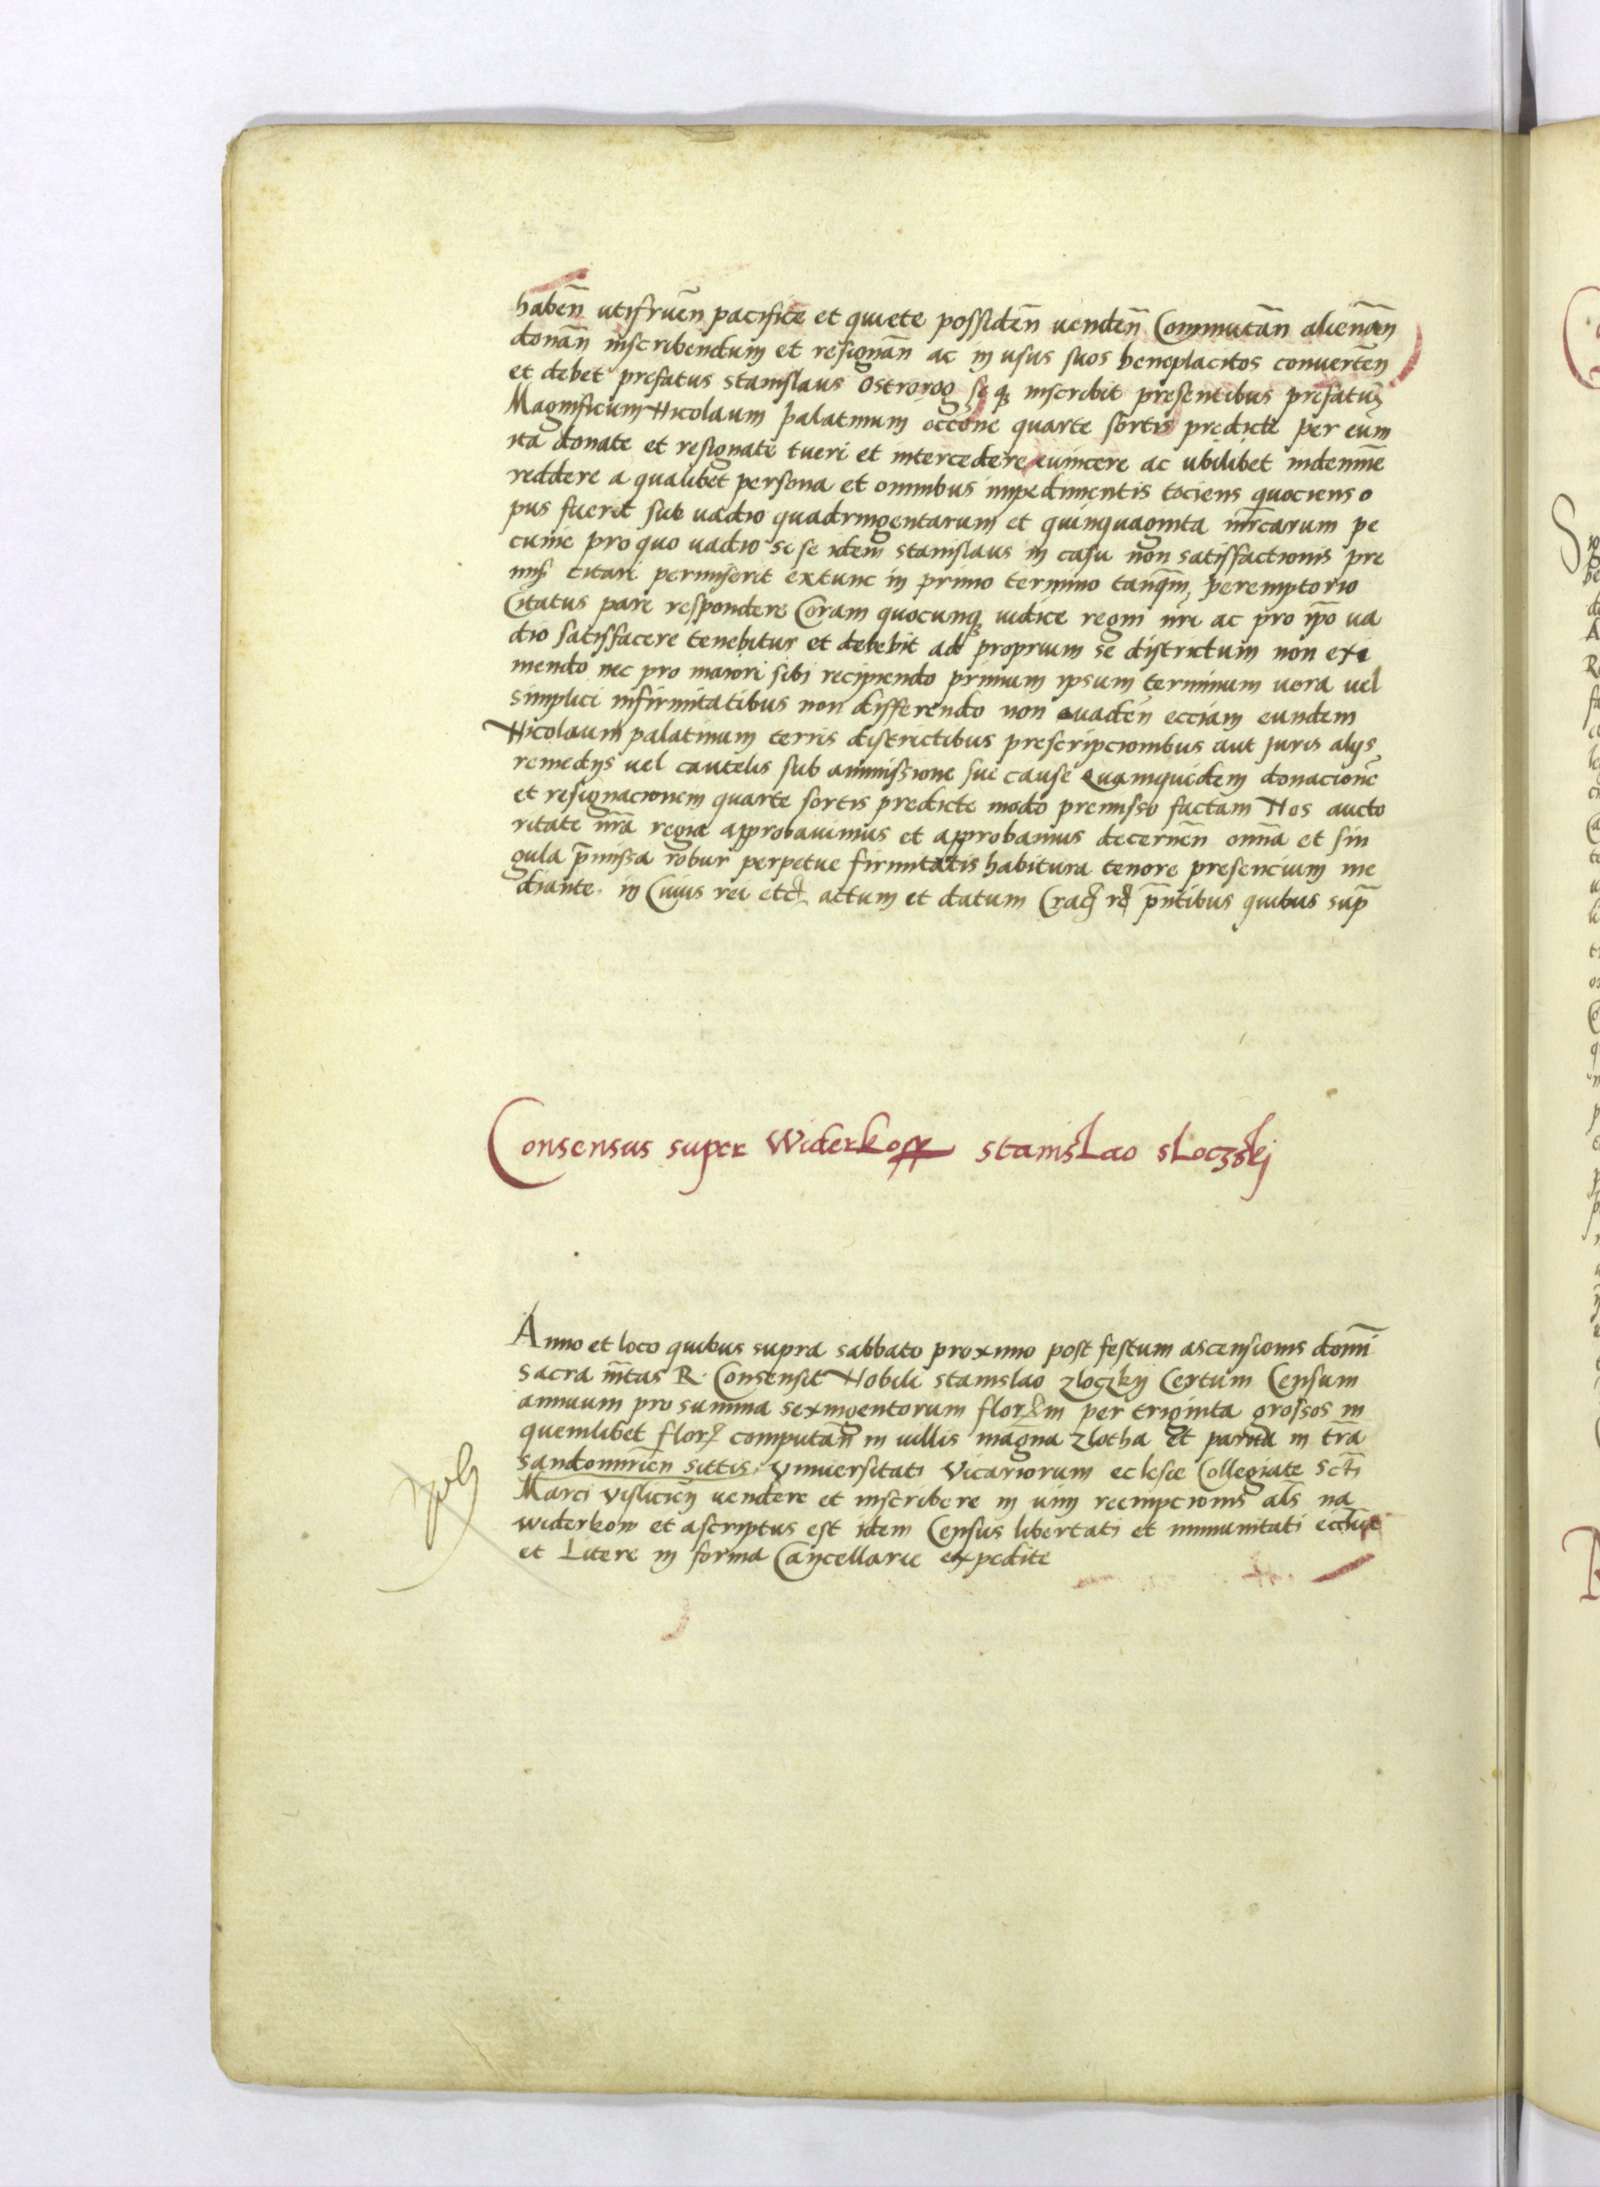 habeñ utifrueñ pacifice et quiete possideñ uendeñ Commutañ alienañ
donañ inscribendum et resignañ ac in usus suos beneplacitos conuerteñ
et debet prefatus stanislaus Ostrorog se qꝫ inscribit presentibus prefatũ
Magnificum Nicolaum palatinum occõne quarte sortis predicte per eum
ita donate et resignate tueri et intercedere euincere ac ubilibet indemnẽ
reddere a qualibet persona et omnibus impedimentis tociens quociens o
pus fuerit sub uadio quadringentarum et quinquaginta mrcarum pe
cunie pro quo uadio se se idem stanislaus in casu non satisfactionis pre
miss citari permiserit extunc in primo termino tanq̃m peremptorio
Citatus pare respondere Coram quocunqꝫ iudice regni nri ac pro ip̃o ua
dio satisfacere tenebitur et debebit ad proprium se districtum non exi
mendo nec pro maiori sibi recipiendo primum ipsum terminum uera uel
simplici infirmitatibus non differendo non euadeñ ecciam eundem
Nicolaum palatinum terris districtibus prescripcionibus aut juris alijs
remedijs uel cautelis sub ammissione sue cause Quamquidem donacionẽ
et resignacionem quarte sortis predicte modo premisso factam Nos aucto
ritate nrã regia approbauimus et approbamus decerneñ omñia et sin
gula p̃missa robur perpetue firmitatis habitura tenore presencium me
diante. in Cuius rei etc. actum et datum Crac̃ rc̃ p̃ntibus quibus sup̃
Consensus super Widerkoff stanisLao sLoczskj
Anno et loco quibus supra sabbato proximo post festum ascensionis domĩ
sacra m̃tas R. Consensit Nobili stanislao zloczkij Certum Censum
annuum pro summa sexingentorum florꝫ in per triginta grossos in
quemlibet florꝫ computañ in uillis magna zlotha et parua in trã
sandomirieñ sittis. Vniuersitati Vicariorum eclesie Collegiate scti
Marci visliciẽn uendere et inscribere in uim reempcionis als̃ na
widerkow et ascriptus est idem Census libertati et immunitati
et Litere in forma Cancellarie expedite